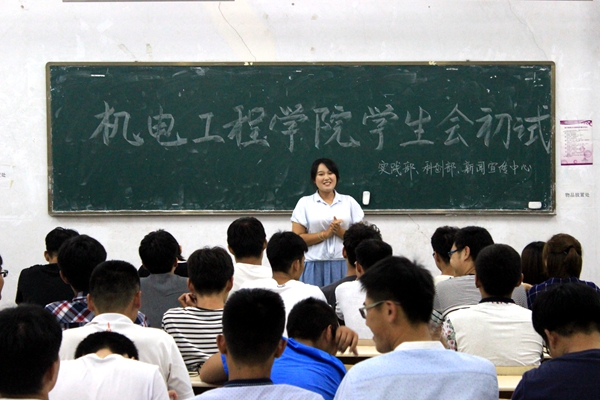 机电工程学院学生会初试
实践部、科创部、新闻宣传中心
物品放置处